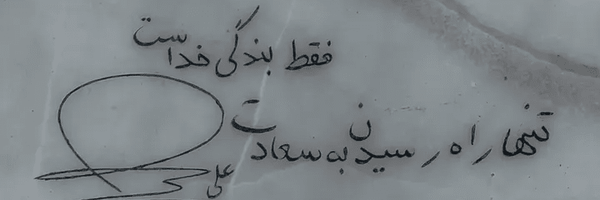 فقط بندگی خداست
تنها راه رسیدن به سعادت
علی